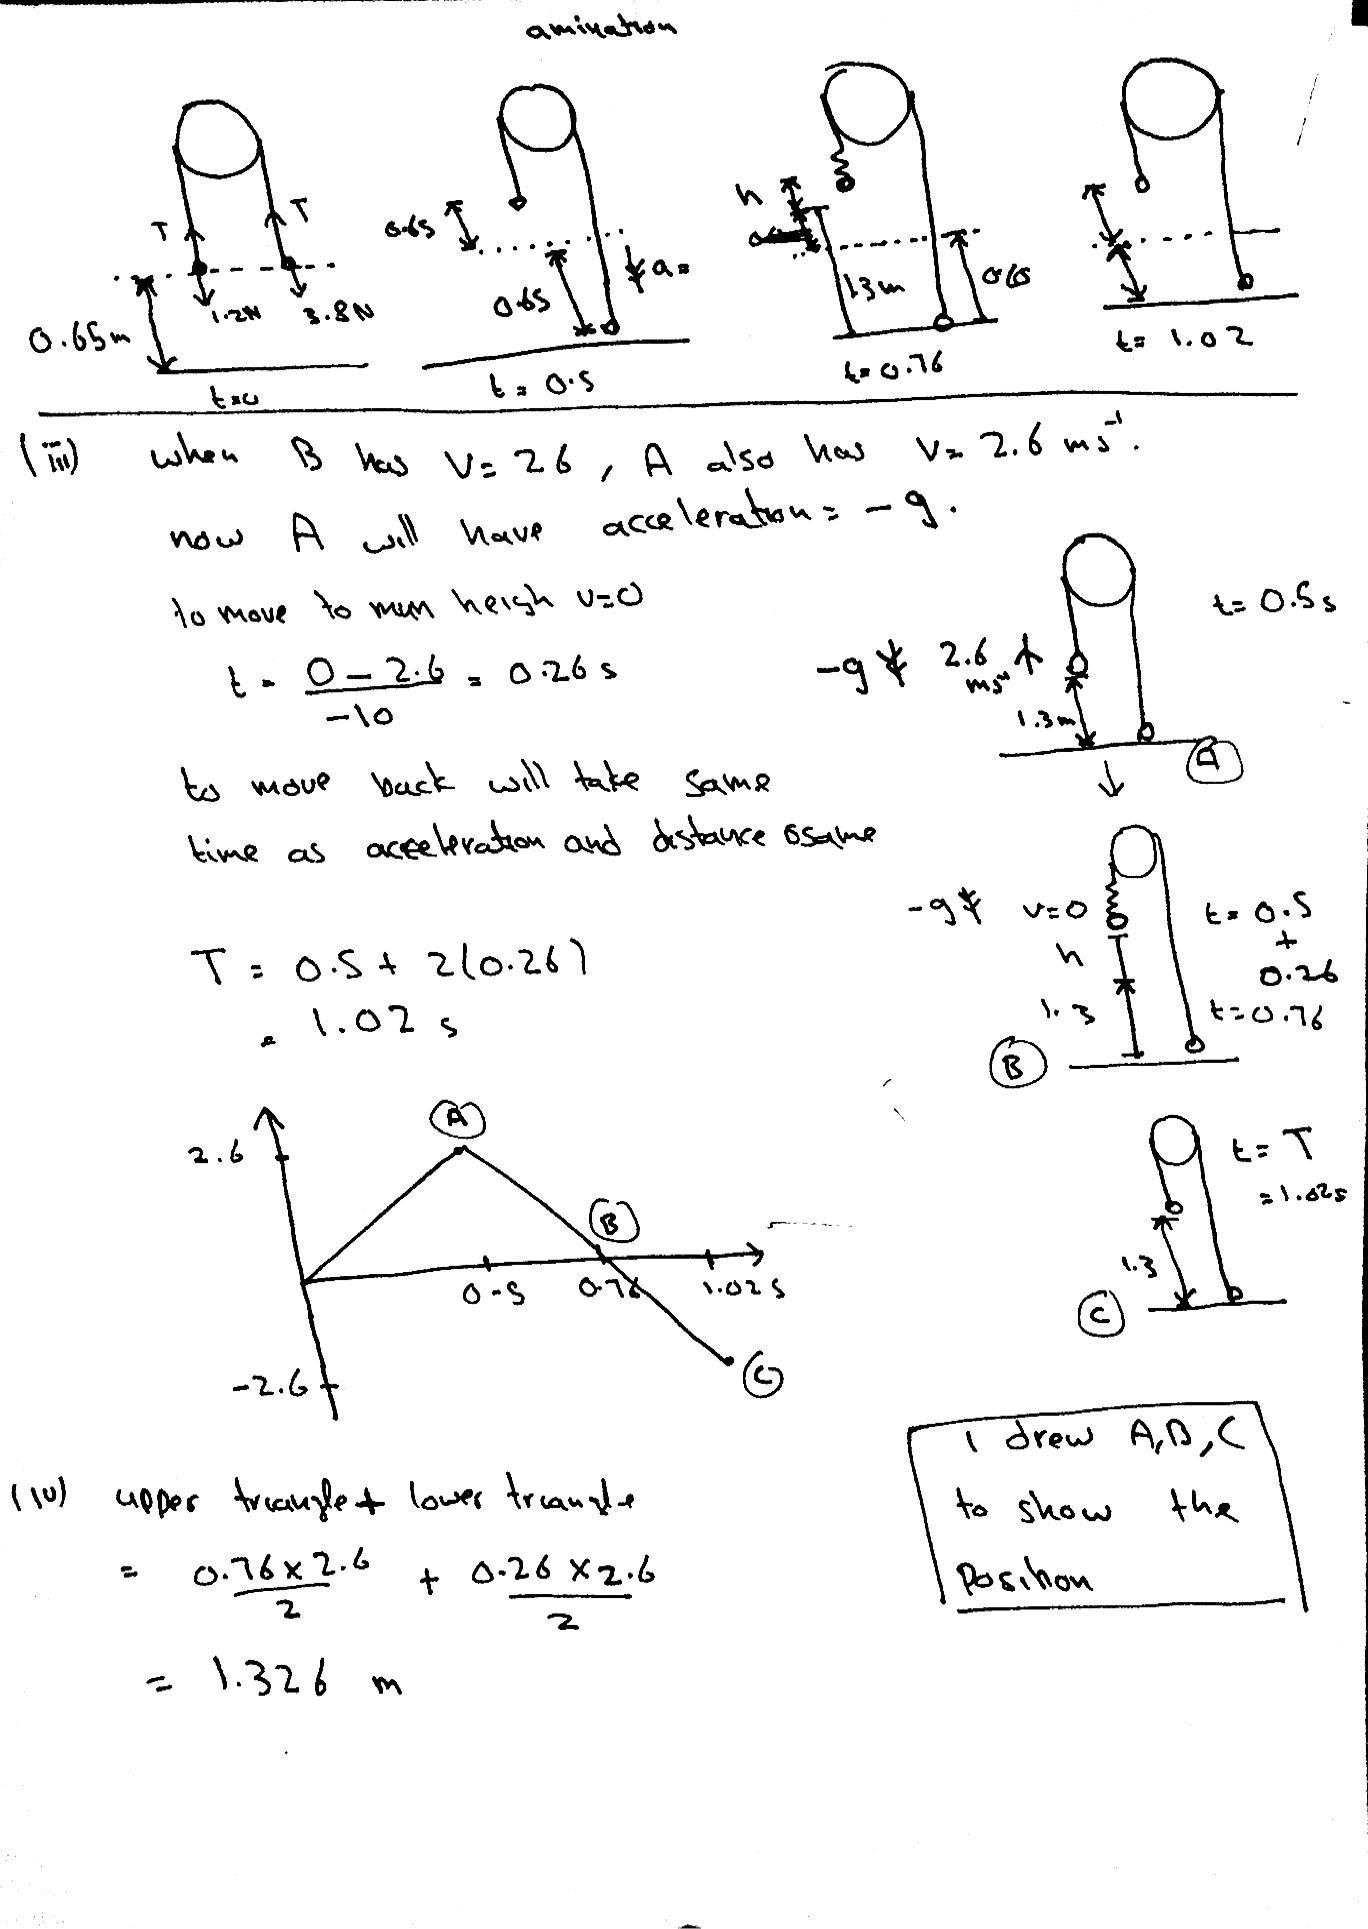 amination
T T
1.2N 3.8N
0.65m
t=0
0.65
0.65
a=
t = 0.5
h
1.3m
0.65
t=0.76
t= 1.02
(iii) when B has V= 26 , A also has V= 2.6 ms⁻¹.
now A will have acceleration = -g.
to move to mum heigh v=0
t = 0 - 2.6 / -10 = 0.26 s
t= 0.5s
-g 2.6 ms⁻¹
1.3m
A
to move back will take same
time as acceleration and distance is same
-g v=0
t= 0.5
+
0.26
t=0.76
h
1.3
B
T = 0.5 + 2(0.26)
= 1.02 s
t= T
=1.02s
1.3
C
2.6
A
B
0.5 0.76 1.02s
-2.6
C
I drew A,B,C
to show the
Position
(iv) upper triangle + lower triangle
= 0.76 x 2.6 / 2 + 0.26 x 2.6 / 2
= 1.326 m